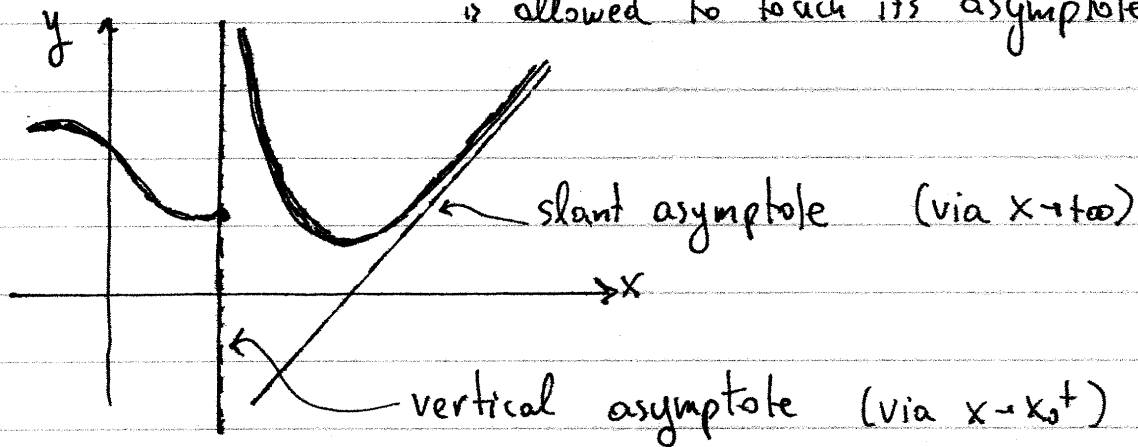 is allowed to touch its asymptote
y
slant asymptote (via x→+∞)
x
vertical asymptote (via x→x₀⁺)